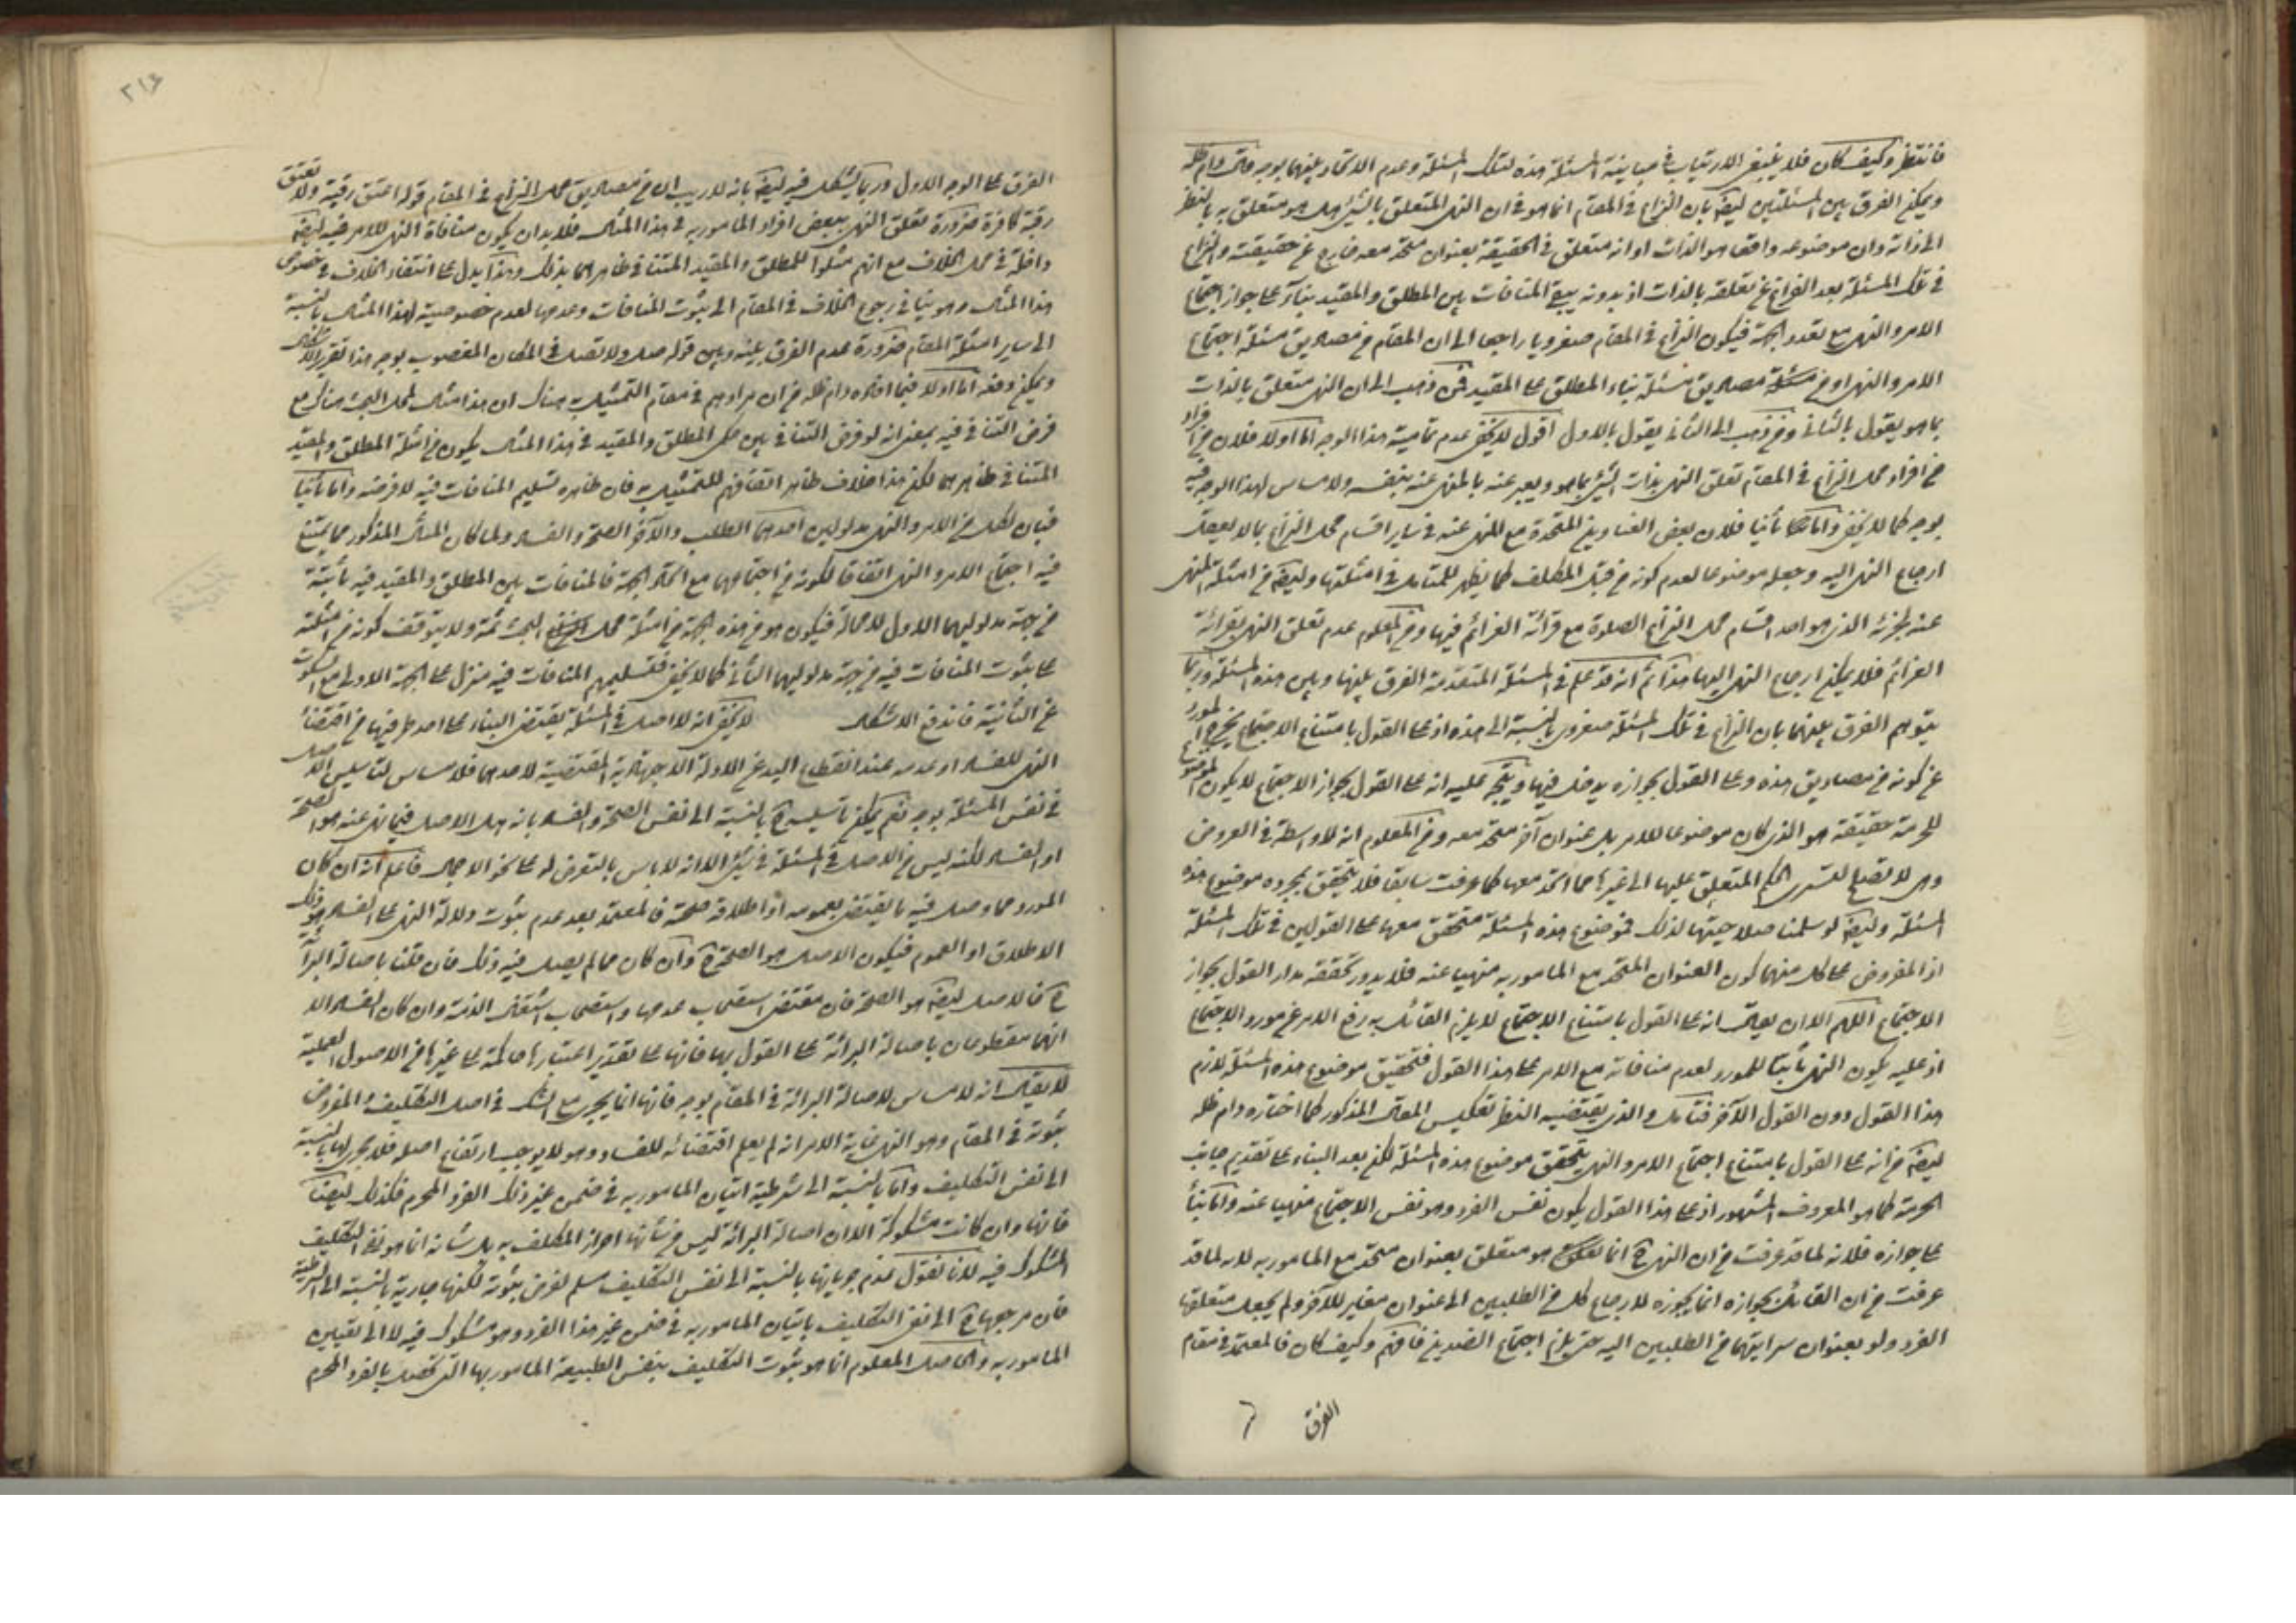 فانتظر وكيف كان فلا ينبغي الارتياب في مباينة المسئلة هذه لتلك المسئلة وعدم الاتحاد بينهما بوجه قال دام ظله
ويمكن الفرق بين المسئلتين ايضا بان النزاع في المقام انما هو في ان النهي المتعلق بالشيء هل هو متعلق به بالنظر
الى ذاته وان موضوعه واقعا هو الذات او انه متعلق في الحقيقة بعنوان متحد معه خارج عن حقيقته والنزاع
في تلك المسئلة بعد الفراغ عن تعلقه بالذات اذ بدونه يبقى المنافات بين المطلق والمقيد بناء على جواز اجتماع
الامر والنهي مع تعدد الجهة فيكون النزاع في المقام صغرويا راجعا الى ان المقام من مصاديق مسئلة اجتماع
الامر والنهي او من مصاديق مسئلة بناء المطلق على المقيد فمن ذهب الى ان النهي متعلق بالذات
بما هو يقول بالثاني ومن ذهب الى الثاني يقول بالاول اقول لا يخفى عدم تمامية هذا الوجه اما اولا فلان من افراد
من افراد محل النزاع في المقام تعلق النهي بذات الشيء بما هو ويعبر عنه بالمنهي عنه بنفسه ولا مساس لهذا الوجه فيه
بوجه كما لا يخفى واما ثانيا فلان بعض العناوين المتحدة مع المنهي عنه في ساير اقسام محل النزاع مما لا يعقل
ارجاع النهي اليه وجعله موضوعا لعدم كونه من قبل المكلف كما يظهر للمتامل في امثلتها وايضا من امثلة المنهي
عنه لجزئه الذي هو احد اقسام محل النزاع الصلوة مع قرائة العزائم فيها ومن المعلوم عدم تعلق النهي بقرائة
العزائم فلا يمكن ارجاع النهي اليها هذا ثم انه قد علم في المسئلة المتقدمة الفرق بينها وبين هذه المسئلة وربما
يتوهم الفرق بينهما بان النزاع في تلك المسئلة صغروي بالنسبة الى هذه اذ على القول بامتناع الاجتماع يخرج المورد
عن كونه من مصاديق هذه وعلى القول بجوازه يدخل فيها ويتجه عليه انه على القول بجواز الاجتماع لا يكون الموضوع
للحرمة حقيقة هو الذي كان موضوعا للامر بل عنوان آخر متحد معه ومن المعلوم انه لا واسطة في العروض
وهي لا تصلح لتسري الحكم المتعلق عليها الى غيرها مما اتحد معها كما عرفت سابقا فلا يتحقق بمجرده موضوع هذه
المسئلة وايضا لو سلمنا صلاحيتها لذلك فموضوع هذه المسئلة متحقق معها على القولين في تلك المسئلة
اذ المفروض على كل منهما كون العنوان المتحد مع المامور به منهيا عنه فلا يدور تحققه مدار القول بجواز
الاجتماع اللهم الا ان يقال انه على القول بامتناع الاجتماع لا يلزم القائل به رفع الامر عن مورد الاجتماع
اذ عليه يكون النهي ثابتا للمورد لعدم منافاته مع الامر على هذا القول فتحقيق موضوع هذه المسئلة لازم
هذا القول دون القول الآخر فتامل والذي يقتضيه النظر تعكيس المقال المذكور كما اختاره دام ظله
ايضا من انه على القول بامتناع اجتماع الامر والنهي يتحقق موضوع هذه المسئلة لكن بعد البناء على تقديم جانب
الحرمة كما هو المعروف المشهور اذ على هذا القول يكون نفس الفرد وهو نفس الاجتماع منهيا عنه واما بناء
على جوازه فلانه لما قد عرفت من ان النهي ح انما هو متعلق بعنوان متحد مع المامور به لا به لما قد
عرفت من ان القائل بجوازه انما يجوزه لارجاع كل من الطلبين الى عنوان مغاير للآخر ولم يجعل متعلقها
الفرد ولو بعنوان سرايتهما من الطلبين اليه حتى يلزم اجتماع الضدين فافهم وكيف كان فالمعتمد في مقام
الفرق
۲۱۶
الفرق على الوجه الاول وربما يشكل فيه ايضا بانه لا ريب ان من مصاديق محل النزاع في المقام قوله اعتق رقبة ولا تعتق
رقبة كافرة ضرورة تعلق النهي ببعض افراد المامور به في هذا المثال فلا بد ان يكون منافاة النهي للامر فيه ايضا
داخلة في محل الخلاف مع انهم مثلوا للمطلق والمقيد المتنافي ظاهرهما بذلك وهذا يدل على انتفاء الخلاف في خصوص
هذا المثال وهو ينافي رجوع الخلاف في المقام الى ثبوت المنافات وعدمها لعدم خصوصية لهذا المثال بالنسبة
الى ساير امثلة المقام ضرورة عدم الفرق بينه وبين قوله صل ولا تصل في المكان المغصوب بوجه هذا تقرير الاشكال
ويمكن دفعه اما اولا فبما افاده دام ظله من ان مرادهم في مقام التمثيل هناك ان هذا مثال لمحل البحث هناك مع
فرض التنافي فيه بمعنى انه لو فرض التنافي بين حكمي المطلق والمقيد في هذا المثال يكون من امثلة المطلق والمقيد
المتنافي ظاهرهما لكن هذا خلاف ظاهر اتفاقهم للتمثيل به فان ظاهره تسليم المنافات فيه لا فرضه واما ثانيا
فبان لكل من الامر والنهي مدلولين احدهما الطلب والآخر الصحة والفساد ولما كان المثال المذكور مما يمتنع
فيه اجتماع الامر والنهي اتفاقا لكونه من اجتماعهما مع اتحاد الجهة فالمنافات بين المطلق والمقيد فيه ثابتة
من جهة مدلوليهما الاول لا محالة فيكون هو من هذه الجهة من امثلة محل البحث ثمة ولا يتوقف كونه من امثلته
على ثبوت المنافات فيه من جهة مدلوليهما الثاني كما لا يخفى فتسليمهم المنافات فيه منزل على الجهة الاولى مع السكوت
عن الثانية فاندفع الاشكال لا يخفى انه لا اصل في المسئلة يقتضي البناء على احد طرفيها من اقتضاء
النهي للفساد او عدمه عند انقطاع اليد عن الادلة الاجتهادية المقتضية لاحدهما فلا مساس لتاسيس الاصل
في نفس المسئلة بوجه نعم يمكن تاسيسه ح بالنسبة الى نفس الصحة والفساد بانه هل الاصل فيما نهي عنه هو الصحة
او الفساد لكنه ليس من الاصل في المسئلة في شيء الا انه لا باس بالتعرض له على نحو الاجمال فاعلم انه ان كان
المورد مما وصل فيه ما يقتضي بعمومه او اطلاقه صحته فالمعتمد بعد عدم ثبوت دلالة النهي على الفساد هو ذلك
الاطلاق او العموم فيكون الاصل هو الصحة ح وان كان مما لم يصل فيه ذلك فان قلنا باصالة البراءة
ح فالاصل ايضا هو الصحة فان مقتضى استصحاب عدمها واستصحاب اشتغال الذمة وان كان الفساد الا
انهما مقطوعان باصالة البرائة على القول بها فانها على تقدير اعتبارها حاكمة على غيرها من الاصول العملية
لا يقال انه لا مساس لاصالة البرائة في المقام بوجه فانها انما يجري مع الشك في اصل التكليف والمفروض
ثبوته في المقام وهو النهي غاية الامر انه لم يعلم اقتضائه للفساد وهو لا يوجب ارتفاع اصله فلا مجرى لها بالنسبة
الى نفس التكليف واما بالنسبة الى شرطية اتيان المامور به في ضمن غير ذلك الفرد المحرم فكذلك ايضا
فانها وان كانت مشكوكة الا ان اصالة البرائة ليس من شأنها احراز المكلف به بل شانه انما هو نفي التكليف
المشكوك فيه لانا نقول عدم جريانها بالنسبة الى نفس التكليف مسلم لفرض ثبوته لكنها جارية بالنسبة الى الشرطية
فان مرجعها ح الى نفي التكليف باتيان المامور به في ضمن غير هذا الفرد وهو مشكوك فيه لا الى تعيين
المامور به والحاصل المعلوم انما هو ثبوت التكليف بنفس الطبيعة المامور بها التي تحصل بالفرد المحرم